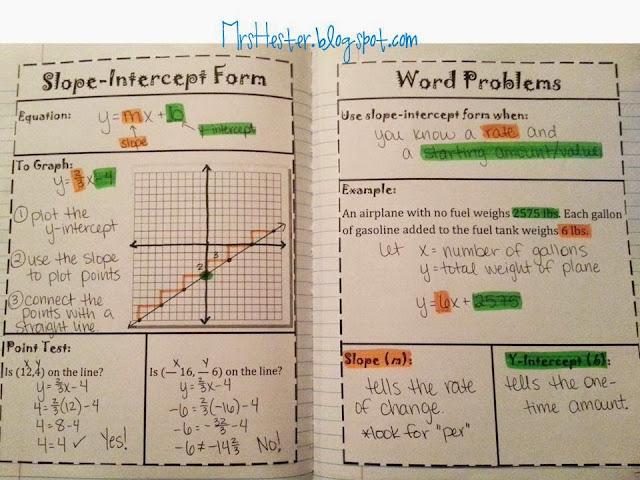 MrsHester.blogspot.com
Slope-Intercept Form
Equation:
y=mx+b
slope
y-intercept
To Graph:
y=2/3x-4
① plot the
y-intercept
② use the slope
to plot points
③ connect the
points with a
straight line.
3
2
Point Test:
x y
Is (12,4) on the line?
y=2/3x-4
4=2/3(12)-4
4=8-4
4=4 ✓ Yes!
x y
Is (—16, — 6) on the line?
y=2/3x-4
-6=2/3(-16)-4
-6=-32/3-4
-6≠-14 2/3 No!
Word Problems
Use slope-intercept form when:
you know a rate and
a starting amount/value
Example:
An airplane with no fuel weighs 2575 lbs. Each gallon
of gasoline added to the fuel tank weighs 6 lbs.
Let x=number of gallons
y=total weight of plane
y=6x+2575
Slope (m):
tells the rate
of change.
*look for "per"
Y-Intercept (b):
tells the one-
time amount.